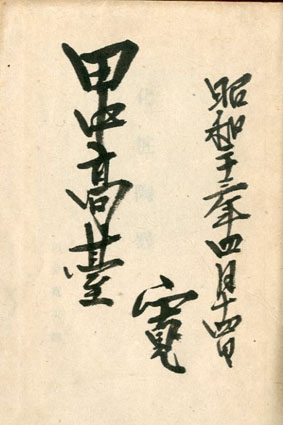 昭和二十三年四月十四日
寛
甲中高臺